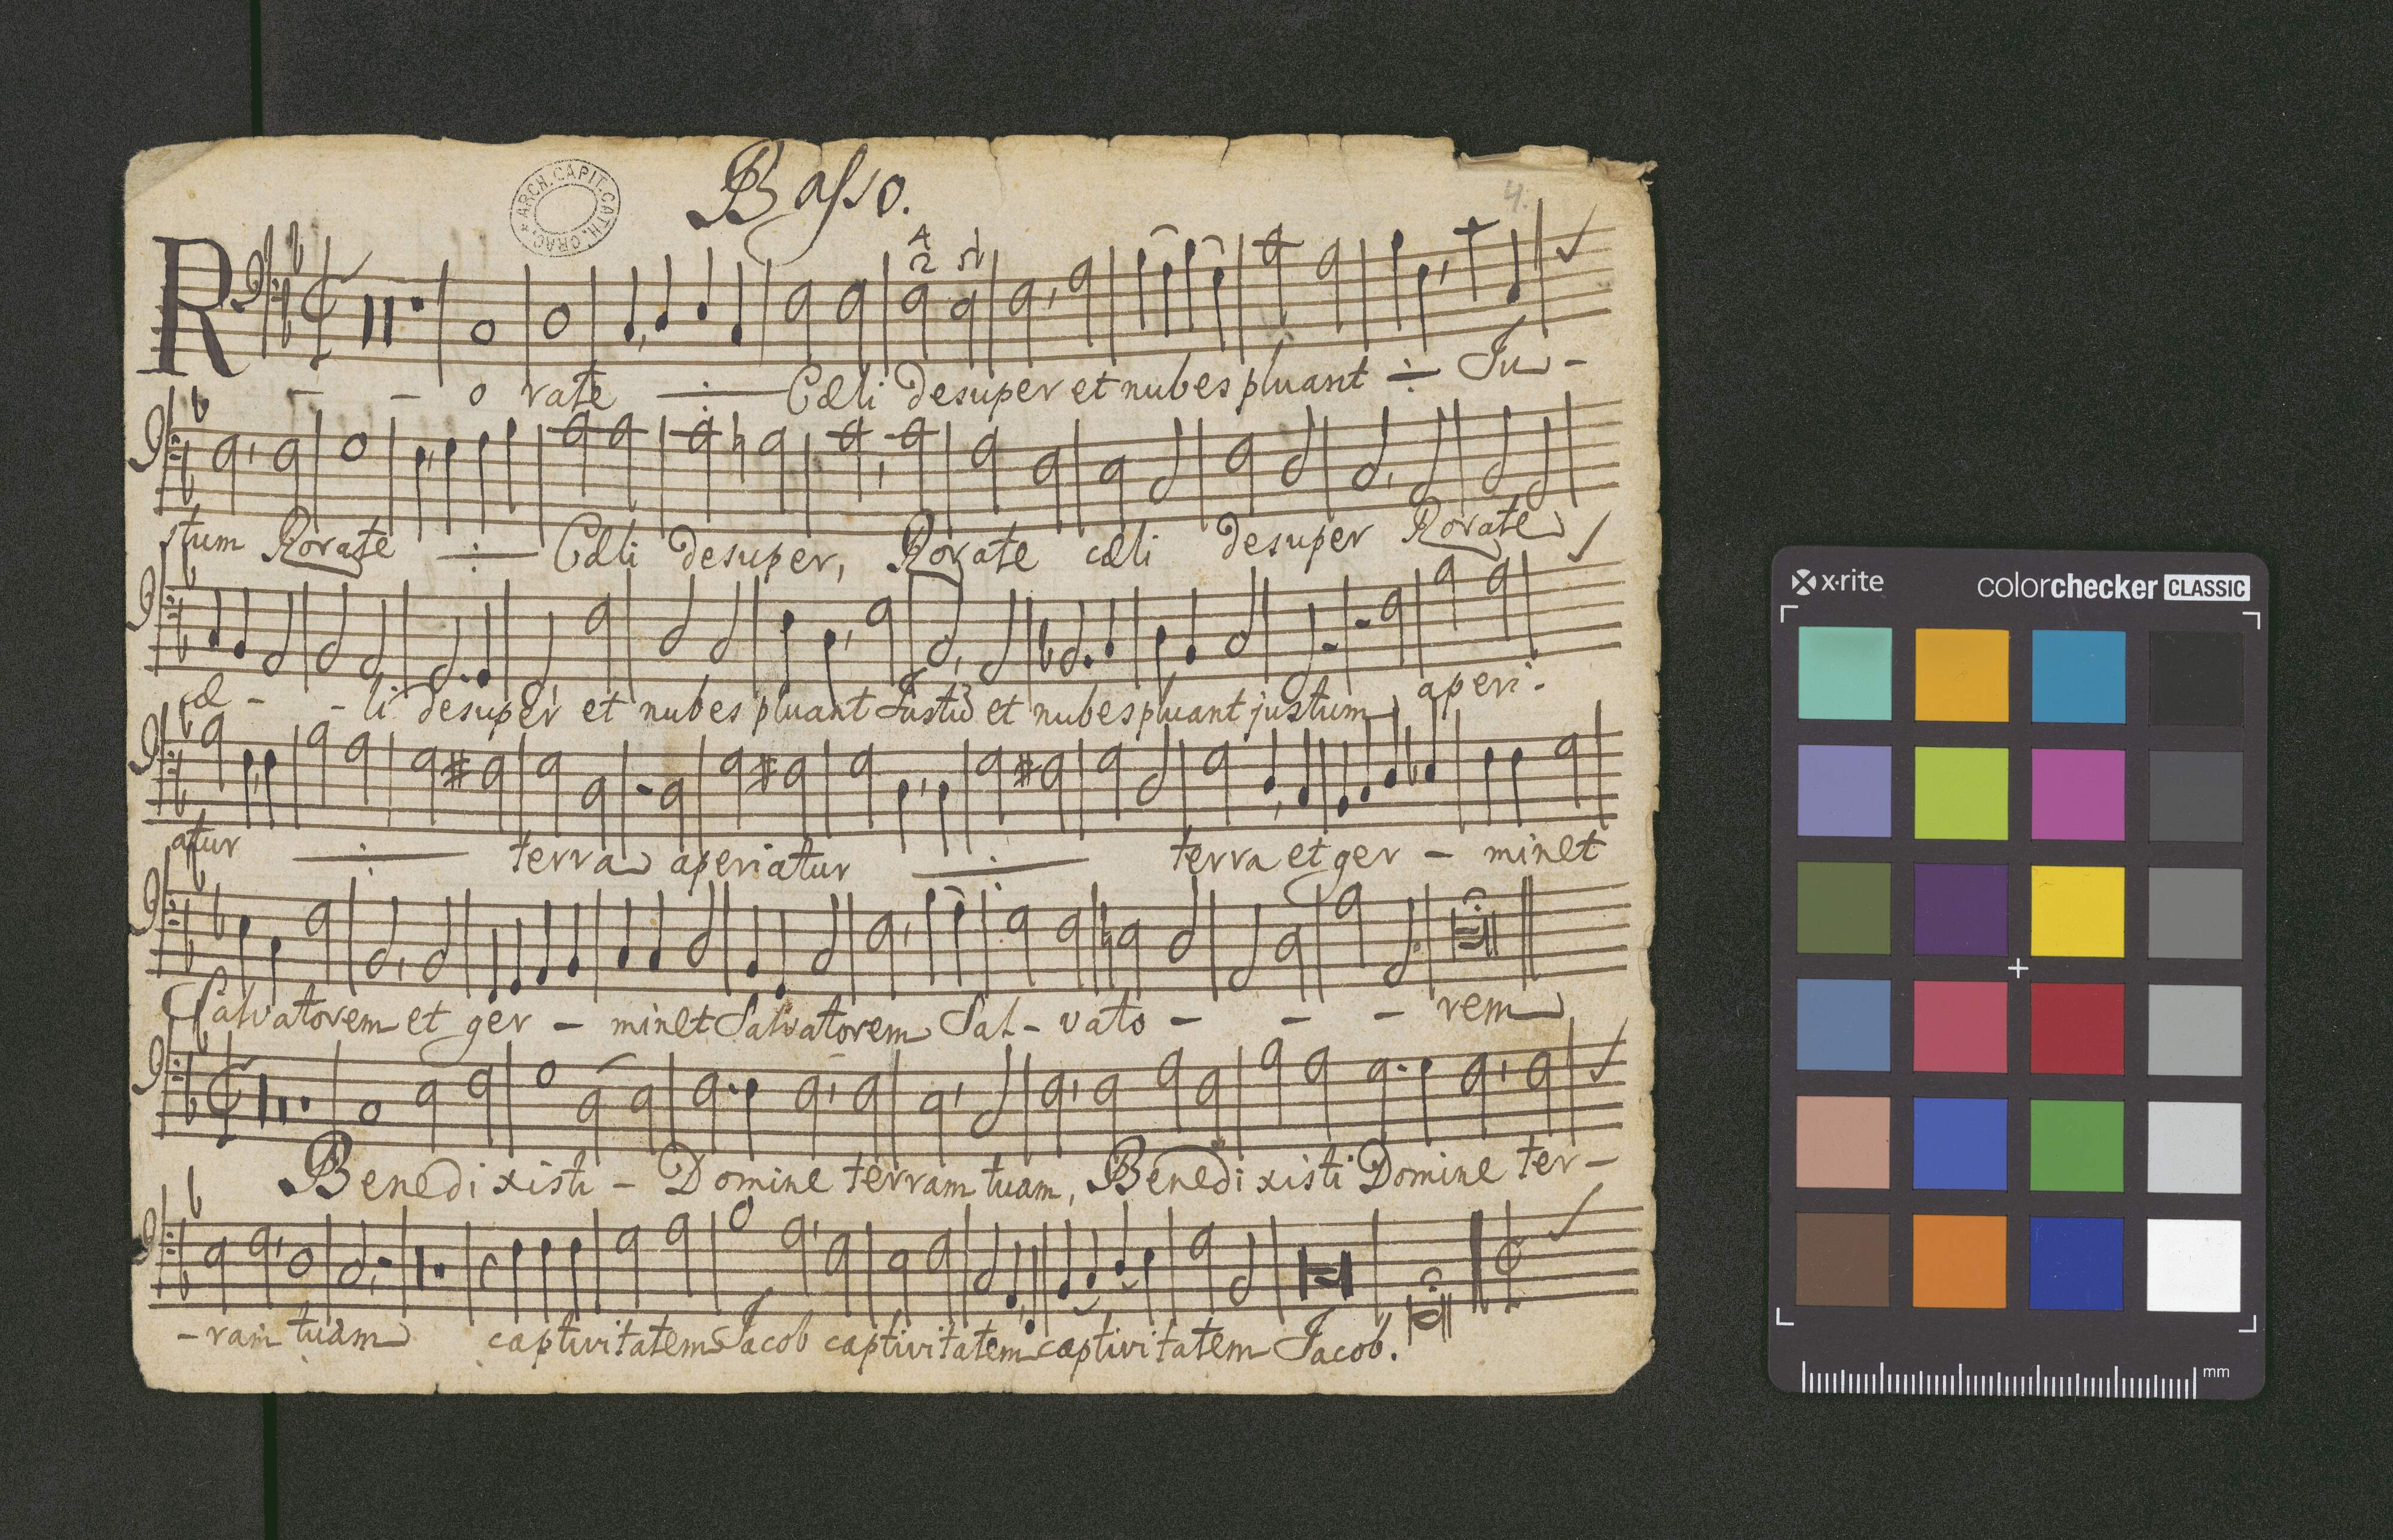 Basso.
ARCH. CAPIT. CATH. CRAC.
4.
4
2
R - - o rate ÷ Cæli desuper et nubes pluant ÷ Ju -
stum Rorate ÷ Cæli desuper, Rorate cæli desuper Rorate
cæ - - li desuper et nubes pluant Justũ et nubes pluant justum aperi -
atur ÷ terra aperiatur ÷ terra et ger - minet
Salvatorem et ger - minet Salvatorem Sal - vato - - - rem
Benedixisti - Domine terram tuam, Benedixisti Domine ter -
- ram tuam captivitatem Jacob captivitatem captivitatem Jacob.
x·rite
colorchecker CLASSIC
mm